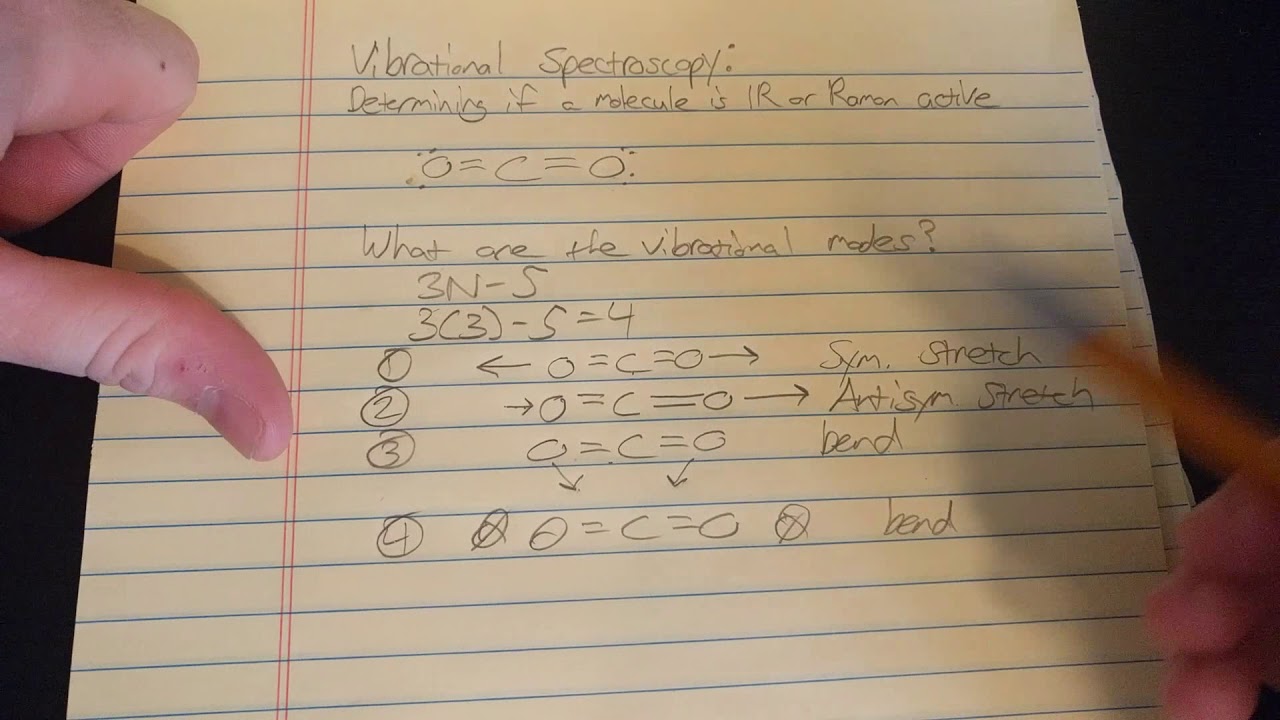 Vibrational Spectroscopy:
Determining if a molecule is IR or Raman active
:Ö=C=Ö:
What are the vibrational modes?
3N-5
3(3)-5=4
① ← O=C=O → Sym. stretch
② → O=C=O → Antisym. stretch
③ O=C=O bend
↘ ↙
④ ⊗ O=C=O ⊗ bend